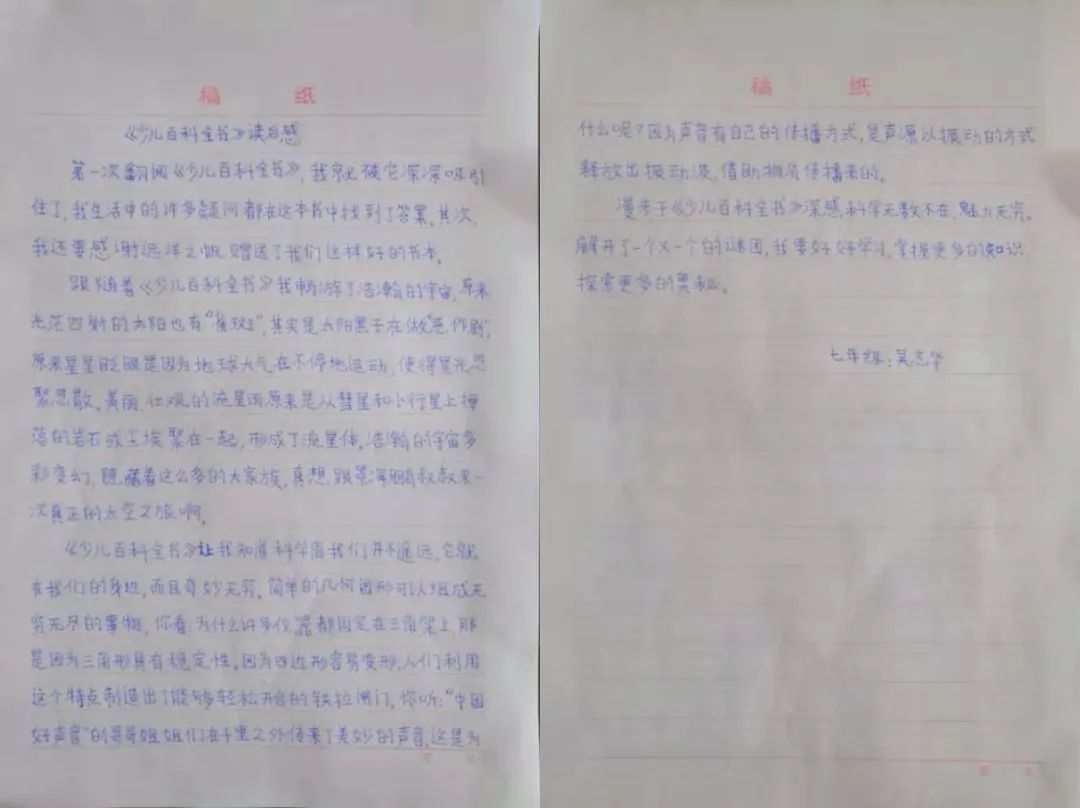 稿 纸
《少儿百科全书》读后感
第一次翻阅《少儿百科全书》,我就被它深深吸引
住了,我生活中的许多疑问都在这本书中找到了答案,其次,
我还要感谢远洋之帆赠送了我们这样好的书本。
跟随着《少儿百科全书》我畅游了浩瀚的宇宙,原来
光茫四射的太阳也有“雀斑”,其实是太阳黑子在做“恶作剧”,
原来星星眨眼是因为地球大气在不停地运动,使得星光忽
聚忽散,美丽、壮观的流星雨原来是从彗星和小行星上掉
落的岩石或尘埃聚在一起,形成了流星体,浩瀚的宇宙多
彩变幻,隐藏着这么多的大家族,真想跟景海鹏叔叔来一
次真正的太空之旅啊。
《少儿百科全书》让我知道科学离我们并不遥远,它就
在我们的身边,而且奇妙无穷,简单的几何图形可以组成无
穷无尽的事物,你看:为什么许多仪器都固定在三角架上,那
是因为三角形具有稳定性,因为四边形容易变形,人们利用
这个特点制造出了能够轻松开合的铁拉闸门,你听:“中国
好声音”的哥哥姐姐们在千里之外传来了美妙的声音,这是为
稿 纸
什么呢?因为声音有自己的传播方式,是声源以振动的方式
释放出振动波,借助物质传播来的。
漫步于《少儿百科全书》深感科学无数不在,魅力无穷,
解开了一个又一个的谜团,我要好好学习,掌握更多的知识,
探索更多的奥秘。
七年级:吴志华